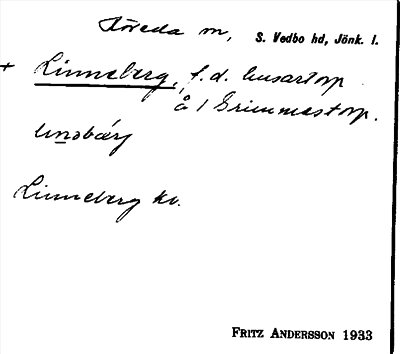 Flöreda sn, S. Vedbo hd, Jönk. l.
+ Linneberg, f.d. husartorp
å 1 Grimmestorp.
linəbærj
Linneberg kv.
FRITZ ANDERSSON 1933